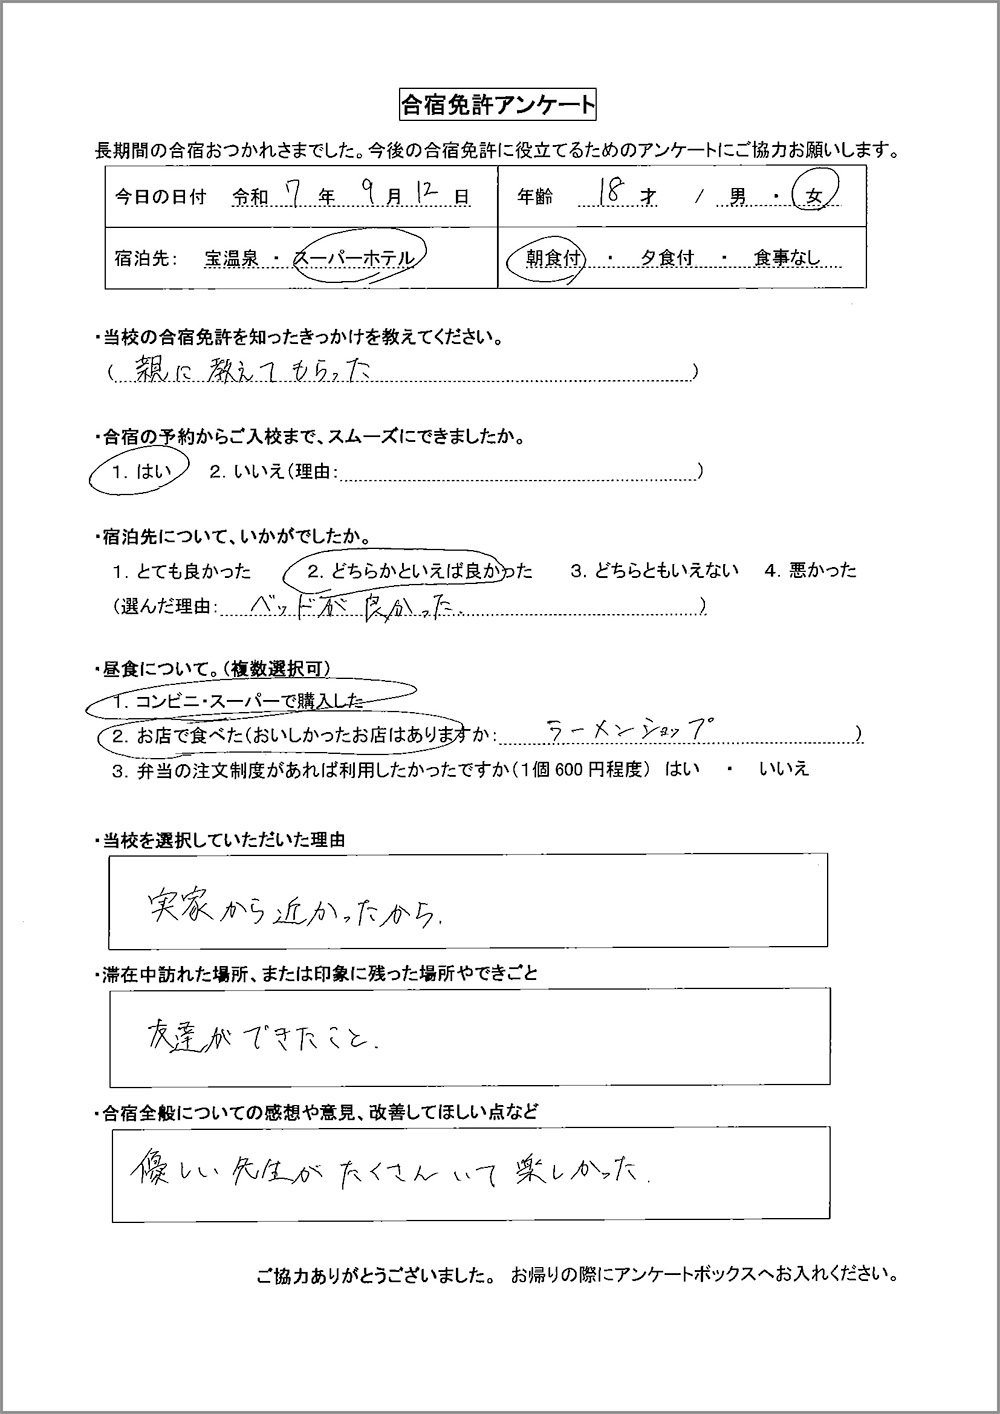 合宿免許アンケート
長期間の合宿おつかれさまでした。今後の合宿免許に役立てるためのアンケートにご協力お願いします。
今日の日付 令和 7 年 9 月 12 日 年齢 18 才 / 男 ・ 女
宿泊先： 宝温泉 ・ スーパーホテル 朝食付 ・ 夕食付 ・ 食事なし
・当校の合宿免許を知ったきっかけを教えてください。
（親に教えてもらった）
・合宿の予約からご入校まで、スムーズにできましたか。
1. はい 2. いいえ（理由：）
・宿泊先について、いかがでしたか。
1. とても良かった 2. どちらかといえば良かった 3. どちらともいえない 4. 悪かった
（選んだ理由： ベッドが良かった.）
・昼食について。（複数選択可）
1. コンビニ・スーパーで購入した
2. お店で食べた（おいしかったお店はありますか： ラーメンショップ）
3. 弁当の注文制度があれば利用したかったですか（1個600円程度） はい ・ いいえ
・当校を選択していただいた理由
実家から近かったから.
・滞在中訪れた場所、または印象に残った場所やできごと
友達ができたこと.
・合宿全般についての感想や意見、改善してほしい点など
優しい先生がたくさんいて楽しかった.
ご協力ありがとうございました。 お帰りの際にアンケートボックスへお入れください。